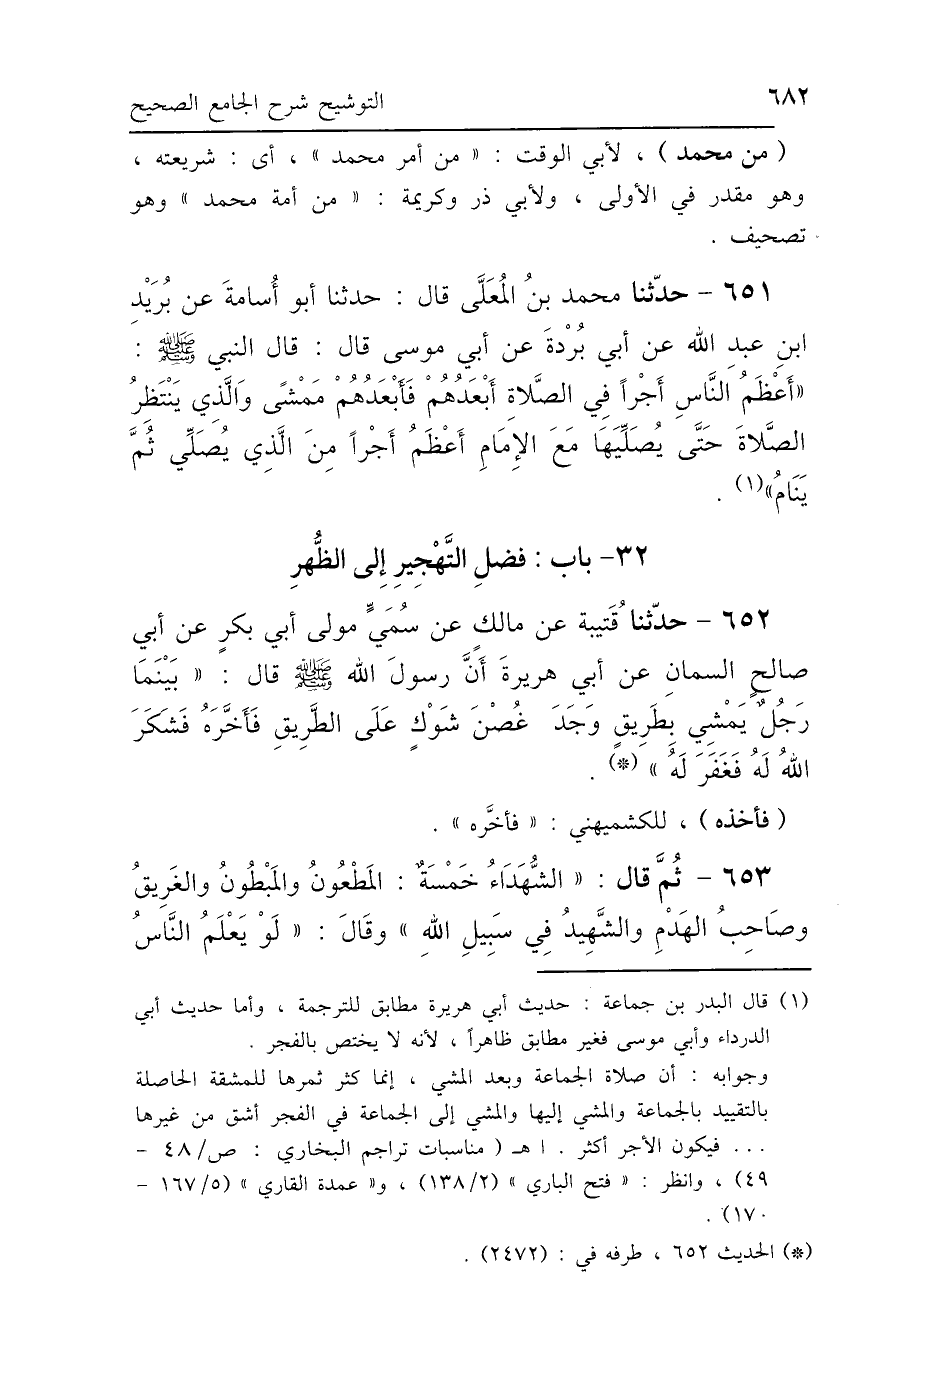 ٦٨٢
التوشيح شرح الجامع الصحيح
( من محمد ) ، لأبي الوقت : « من أمر محمد » ، أى : شريعته ،
وهو مقدر في الأولى ، ولأبي ذر وكريمة : « من أمة محمد » وهو
تصحيف .
٦٥١ - حدّثنا محمد بنُ المُعَلَّى قال : حدثنا أبو أُسامةَ عن بُرَيْدِ
ابنِ عبدِ الله عن أبي بُرْدةَ عن أبي موسى قال : قال النبي ﷺ :
«أَعْظَمُ النَّاسِ أَجْراً فِي الصَّلاةِ أَبْعَدُهُمْ فَأَبْعَدُهُمْ مَمْشًى وَالَّذِي يَنْتَظِرُ
الصَّلاةَ حَتَّى يُصَلِّيَهَا مَعَ الإِمَامِ أَعْظَمُ أَجْراً مِنَ الَّذِي يُصَلِّي ثُمَّ
يَنَامُ»(١) .
٣٢- باب : فضلِ التَّهْجِيرِ إِلى الظُّهرِ
٦٥٢ - حدّثنا قُتَيبة عن مالكٍ عن سُمَيٍّ مولى أبي بكرٍ عن أبي
صالحٍ السمانِ عن أبي هريرةَ أَنَّ رسولَ الله ﷺ قال : « بَيْنَمَا
رَجُلٌ يَمْشِي بِطَرِيقٍ وَجَدَ غُصْنَ شَوْكٍ عَلَى الطَّرِيقِ فَأَخَّرَهُ فَشَكَرَ
اللهُ لَهُ فَغَفَرَ لَهُ » (*) .
( فأخذه ) ، للكشميهني : « فأخَّره » .
٦٥٣ - ثُمَّ قال : « الشُّهَدَاءُ خَمْسَةٌ : المَطْعُونُ والمَبْطُونُ والغَرِيقُ
وصَاحِبُ الهَدْمِ والشَّهِيدُ فِي سَبِيلِ اللهِ » وقَالَ : « لَوْ يَعْلَمُ النَّاسُ
(١) قال البدر بن جماعة : حديث أبي هريرة مطابق للترجمة ، وأما حديث أبي
الدرداء وأبي موسى فغير مطابق ظاهراً ، لأنه لا يختص بالفجر .
وجوابه : أن صلاة الجماعة وبعد المشي ، إنما كثر ثمرها للمشقة الحاصلة
بالتقييد بالجماعة والمشي إليها والمشي إلى الجماعة في الفجر أشق من غيرها
... فيكون الأجر أكثر . ا هـ ( مناسبات تراجم البخاري : ص/٤٨ -
٤٩) ، وانظر : « فتح الباري » (١٣٨/٢) ، و« عمدة القاري » (١٦٧/٥ -
١٧٠) .
(*) الحديث ٦٥٢ ، طرفه في : (٢٤٧٢) .